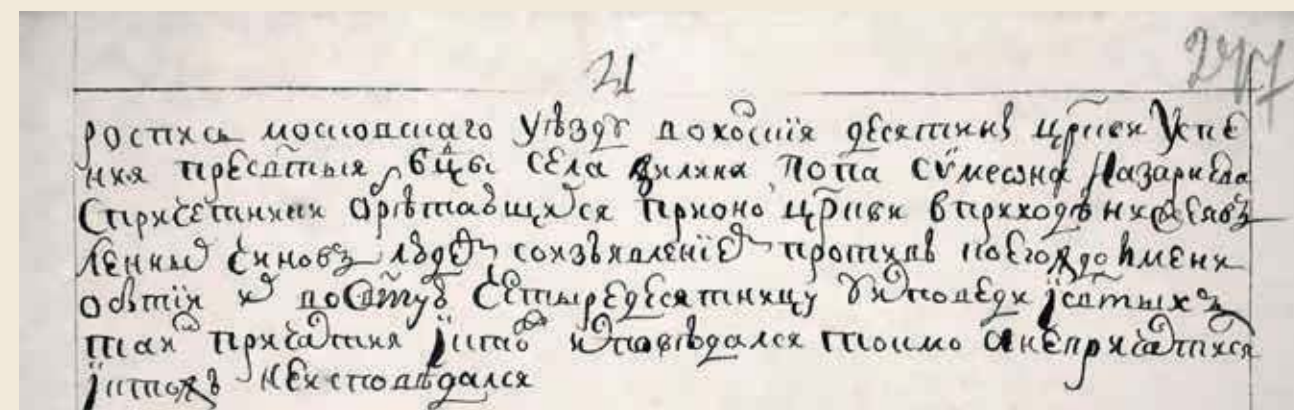 21
247
роспись московскаго уѣзду вохонскія десятины цр̃кви Успе
ния пресвт̃ыя бц̃ы села попа Сѵмеѡна Назариева
с причетники обрѣтающихся при оной цр̃кви в приходѣ нижеявъ
ленных чиновъ людей со изъявлениемъ противъ коегождо имени
о бытіи их во ст̃ую четыредесятницу у исповеди и ст̃ыхъ
таин причастия и кто исповѣдался токмо а не причастился
и ктожъ не исповѣдался